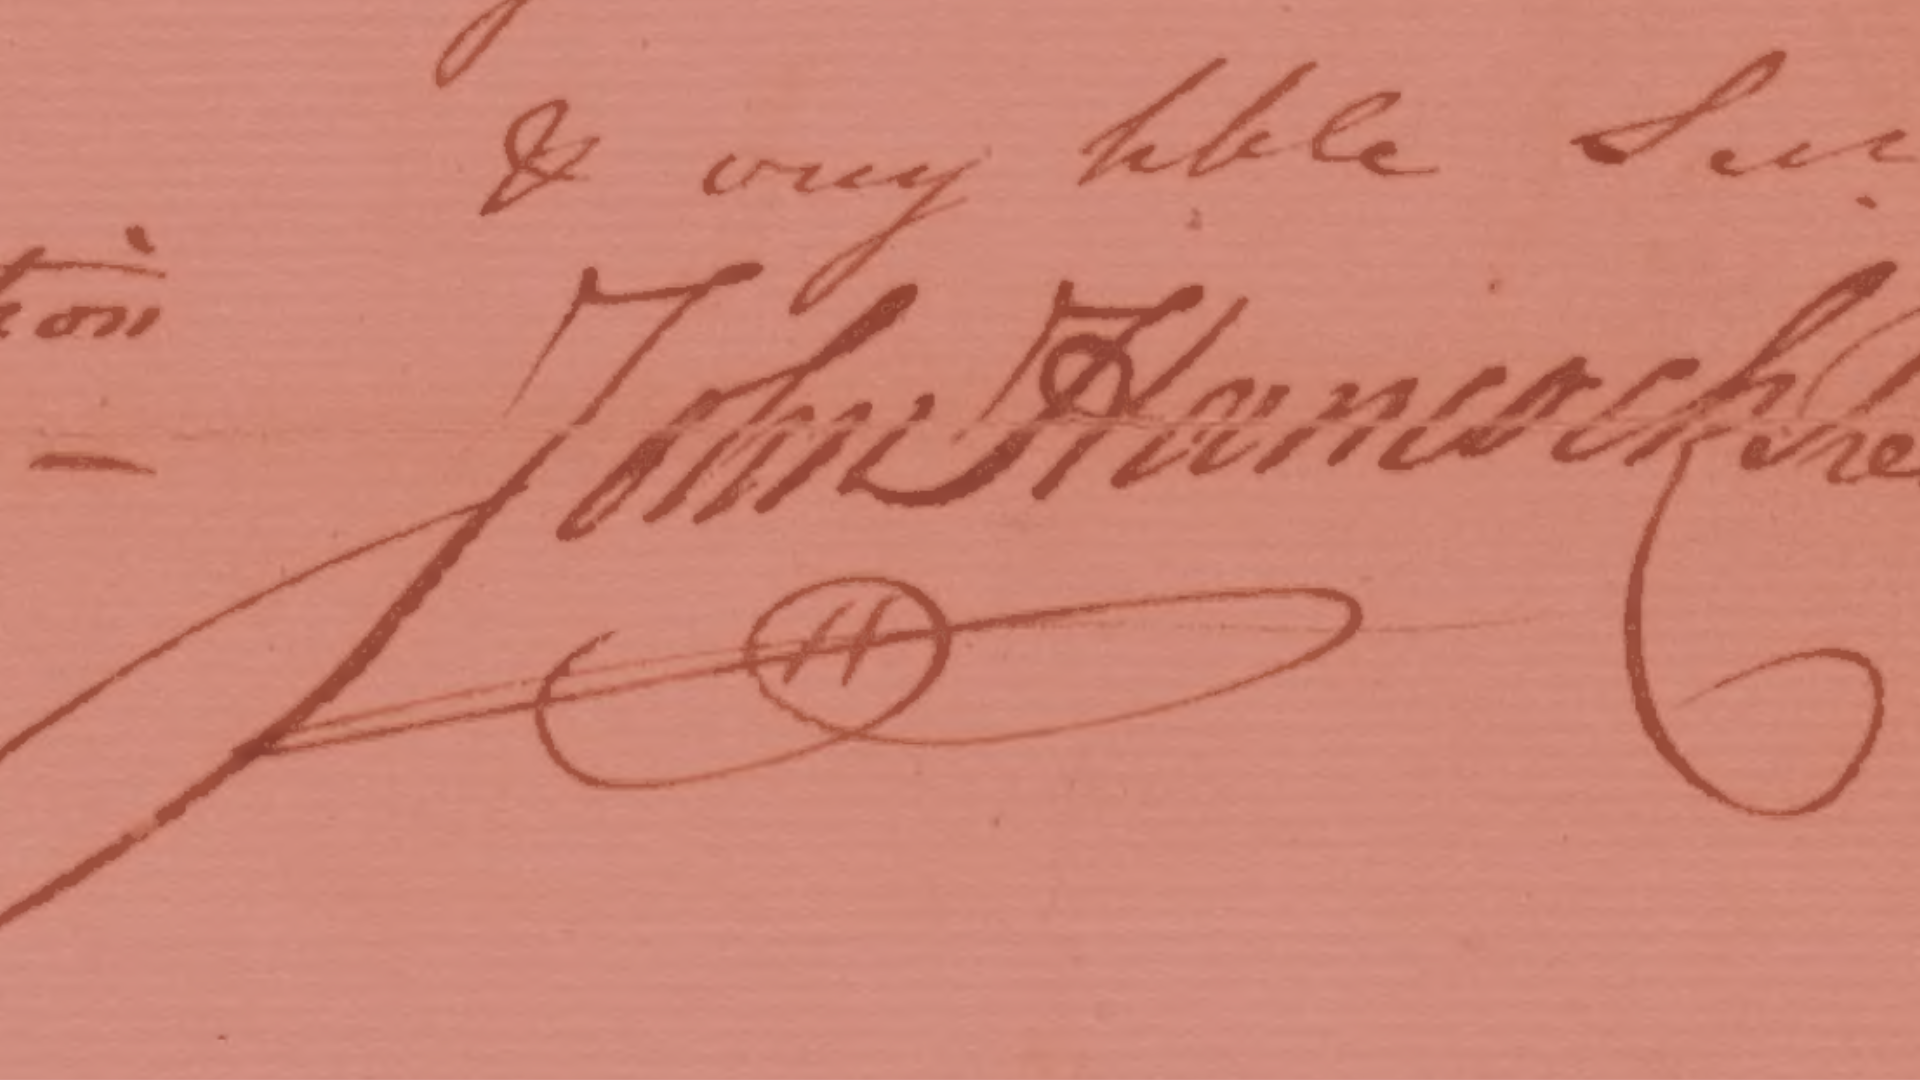 & very hble Ser
tion
John Hancock Pre